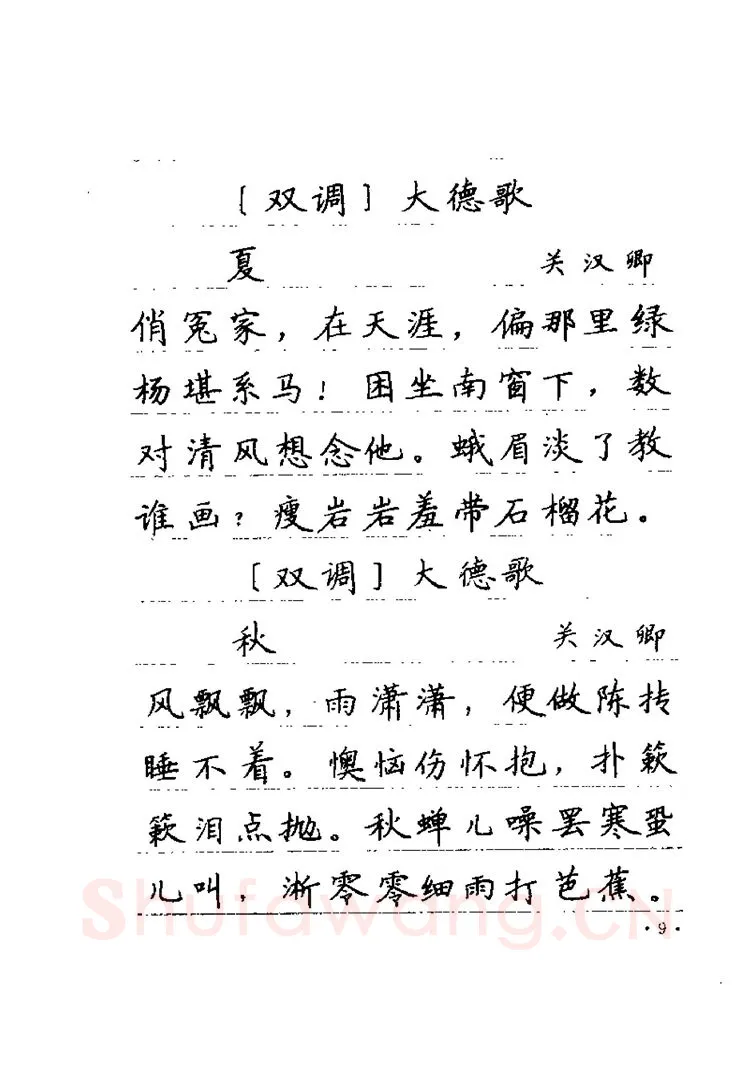 〔双调〕大德歌
夏 关汉卿
俏冤家，在天涯，偏那里绿
杨堪系马！困坐南窗下，数
对清风想念他。蛾眉淡了教
谁画？瘦岩岩羞带石榴花。
〔双调〕大德歌
秋 关汉卿
风飘飘，雨潇潇，便做陈抟
睡不着。懊恼伤怀抱，扑簌
簌泪点抛。秋蝉儿噪罢寒蛩
儿叫，淅零零细雨打芭蕉。
Shufawang.CN
·9·